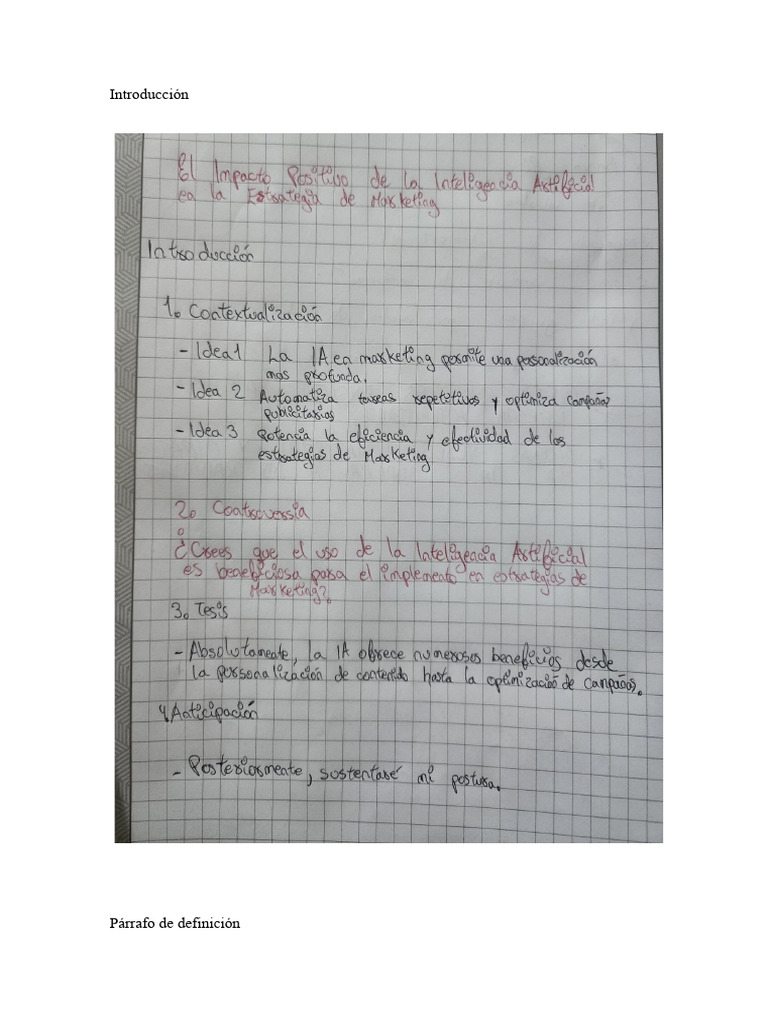 Introducción
El Impacto Positivo de la Inteligeacia Artificial
en la Estrategia de Marketing
Introducción
1. Contextualización
- Idea 1 La IA en marketing permite una personalización
mas profunda.
- Idea 2 Automatiza tareas repetetivos y optimiza campañas
publicitarios
- Idea 3 Potencia la eficiencia y efectividad de los
estrategias de Marketing
2. Controversia
¿Crees que el uso de la Inteligeacia Artificial
es beneficiosa para el implemento en estrategias de
Marketing?
3. Tesis
- Absolutamente, la IA ofrece numerosos beneficios desde
la personalización de contenido hasta la optimización de campañas.
4. Anticipación
- Posteriormente, sustentaré mi postura.
Párrafo de definición